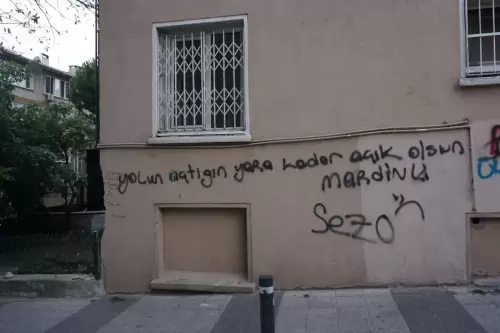 yolun açtığın yara kadar açık olsun
MARDİNLİ
Sezo